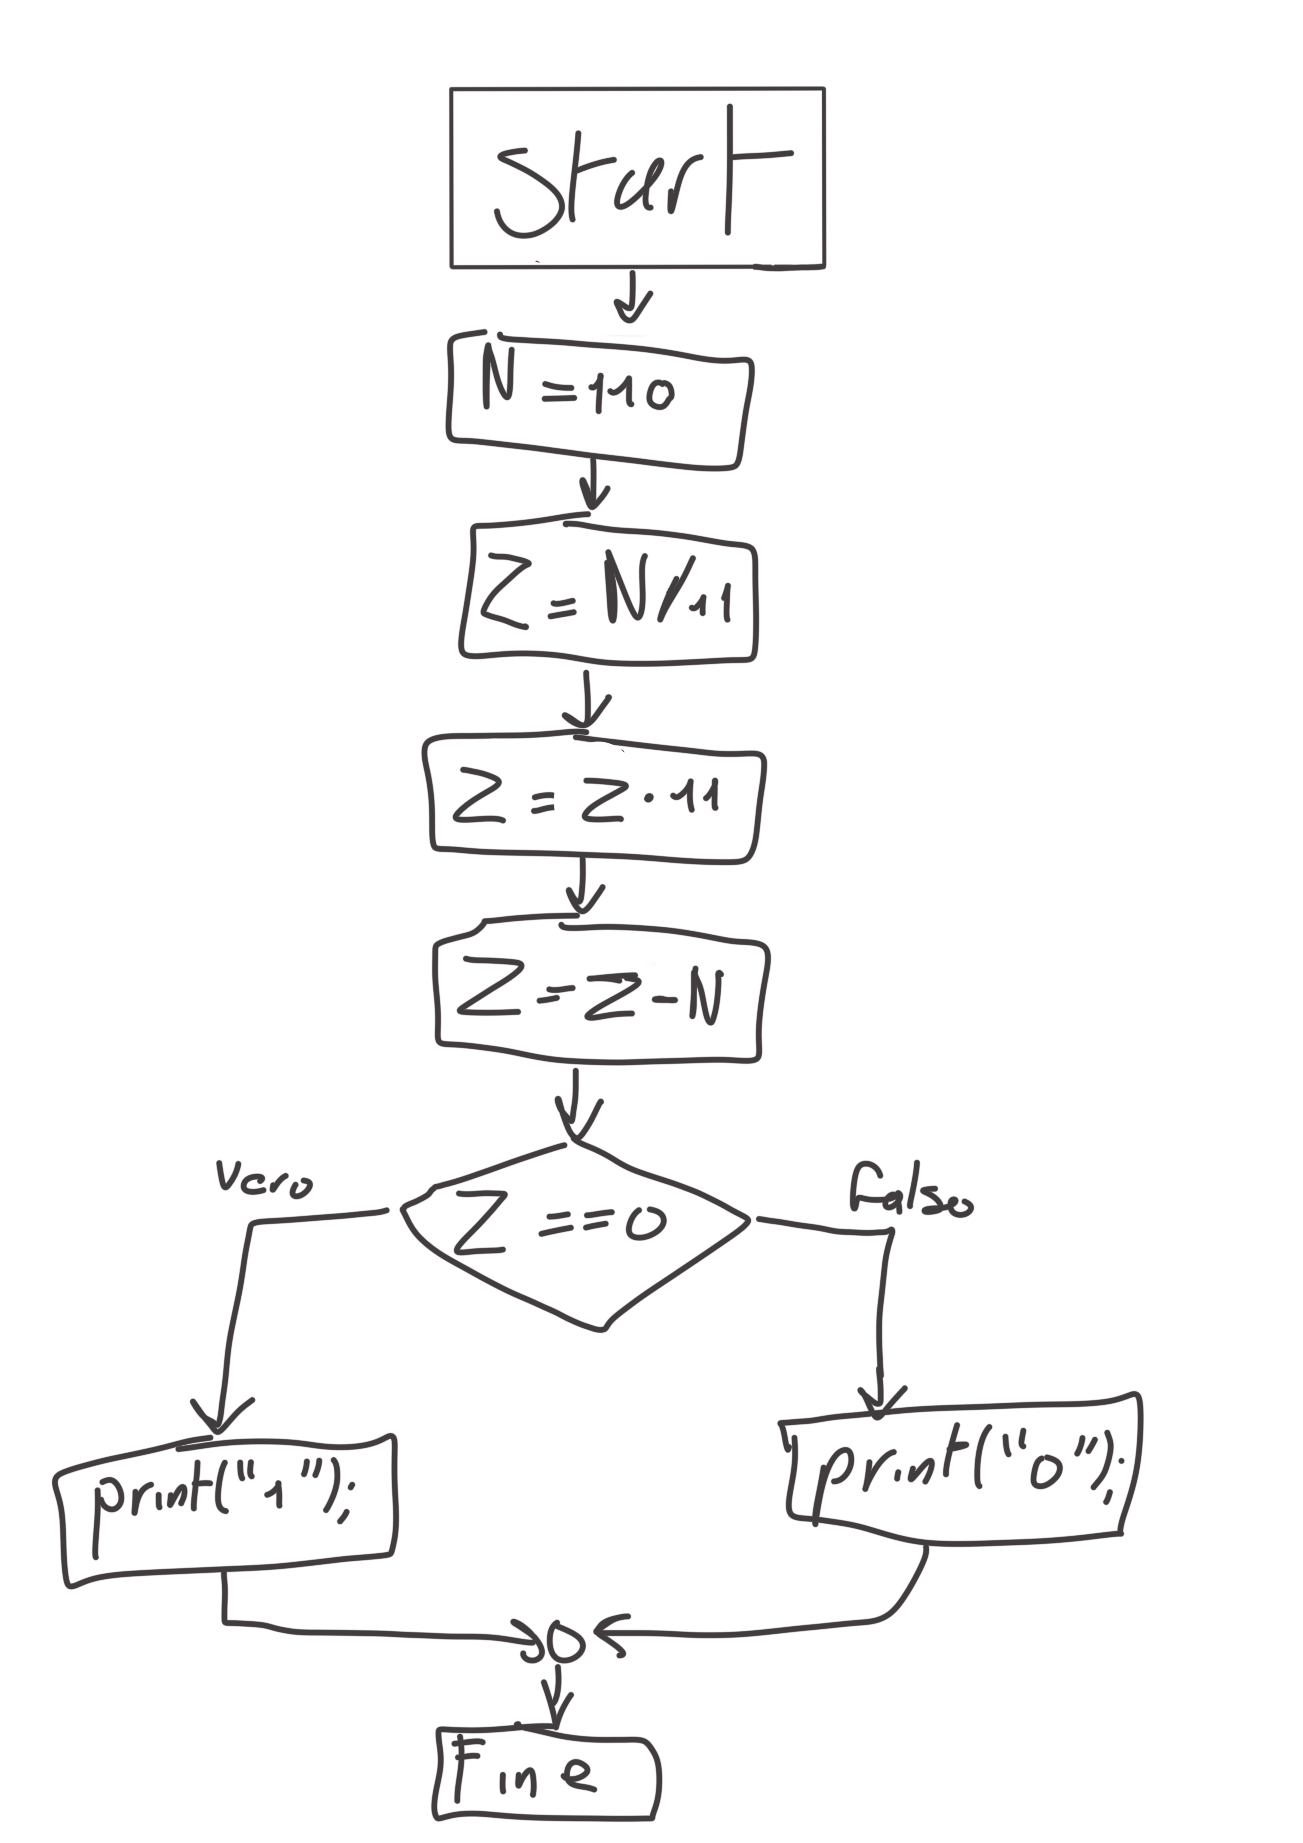 Start
N = 110
Z = N/11
Z = Z · 11
Z = Z - N
Vero
Falso
Z == 0
print("1");
print("0");
Fine